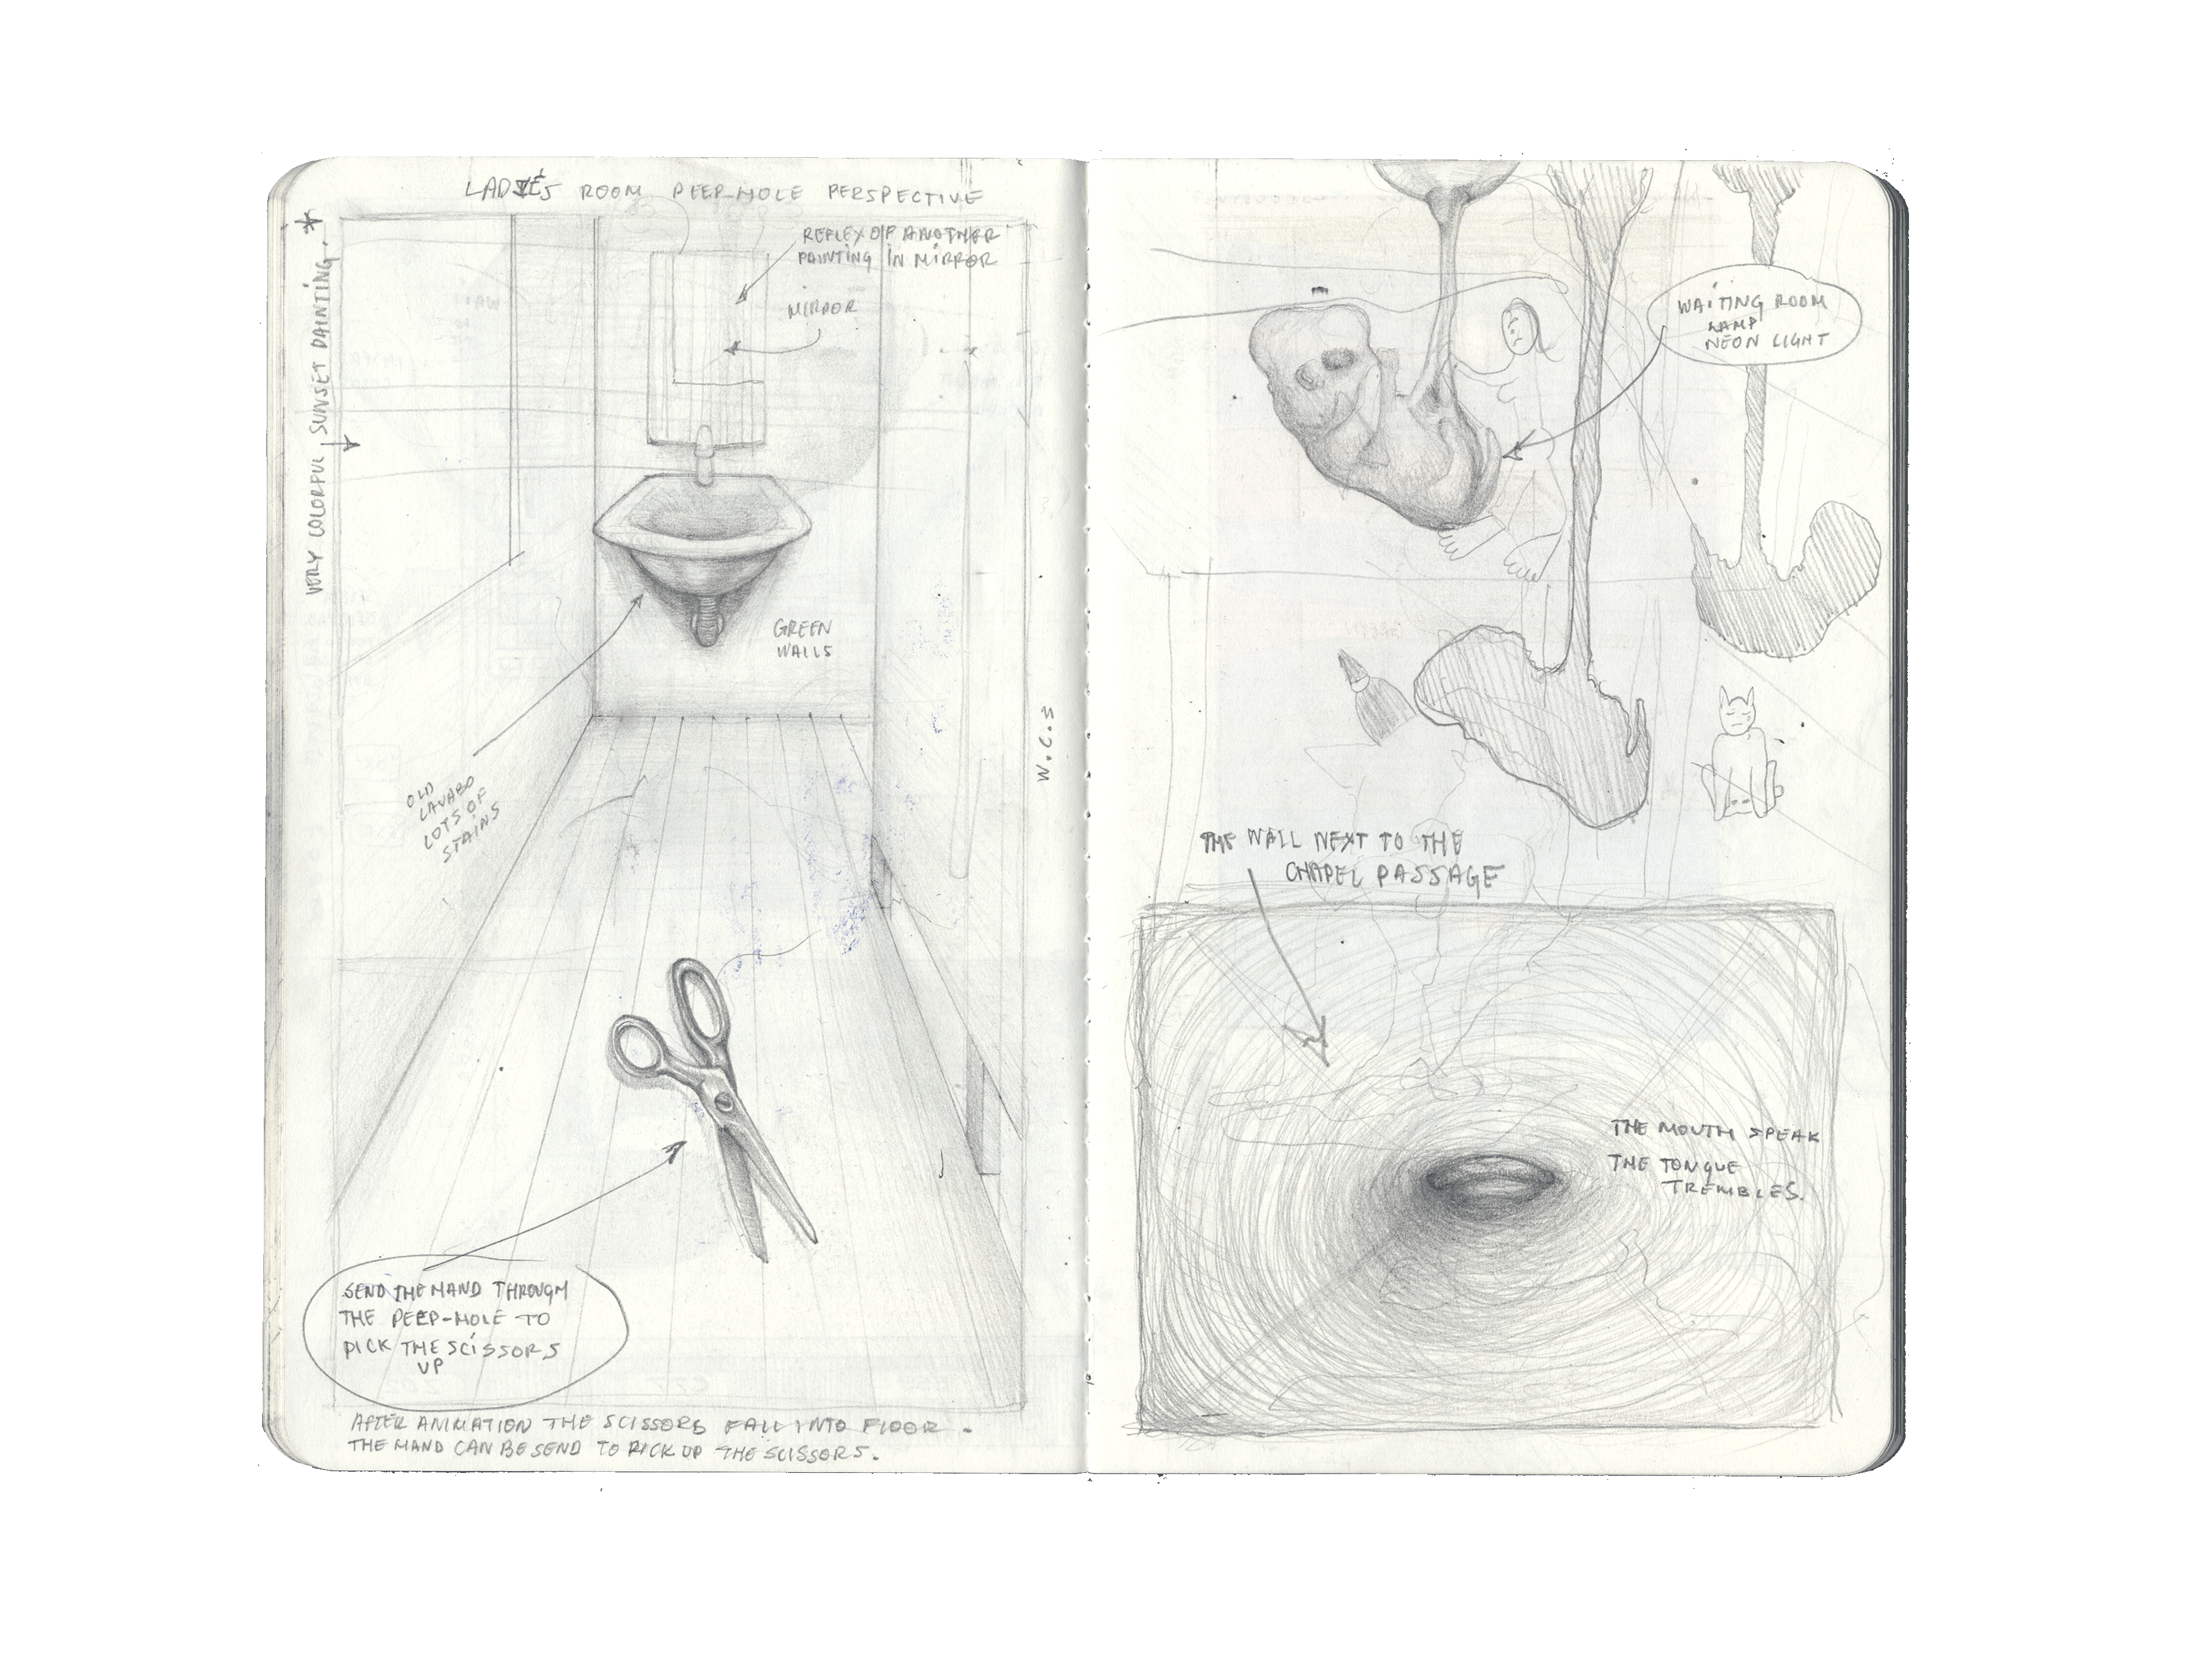 LADIÉS ROOM PEEP-HOLE PERSPECTIVE
VERY COLORFUL SUNSET PAINTING.
REFLEX OF ANOTHER
PAINTING IN MIRROR
MIRROR
GREEN
WALLS
OLD
LAVABO
LOTS OF
STAINS
W.C.S
SEND THE HAND THROUGH
THE PEEP-HOLE TO
PICK THE SCISSORS
UP
AFTER ANIMATION THE SCISSORS FALL INTO FLOOR.
THE HAND CAN BE SEND TO PICK UP THE SCISSORS.
WAITING ROOM
LAMP
NEON LIGHT
THE WALL NEXT TO THE
CHAPEL PASSAGE
THE MOUTH SPEAK
THE TONGUE
TREMBLES.